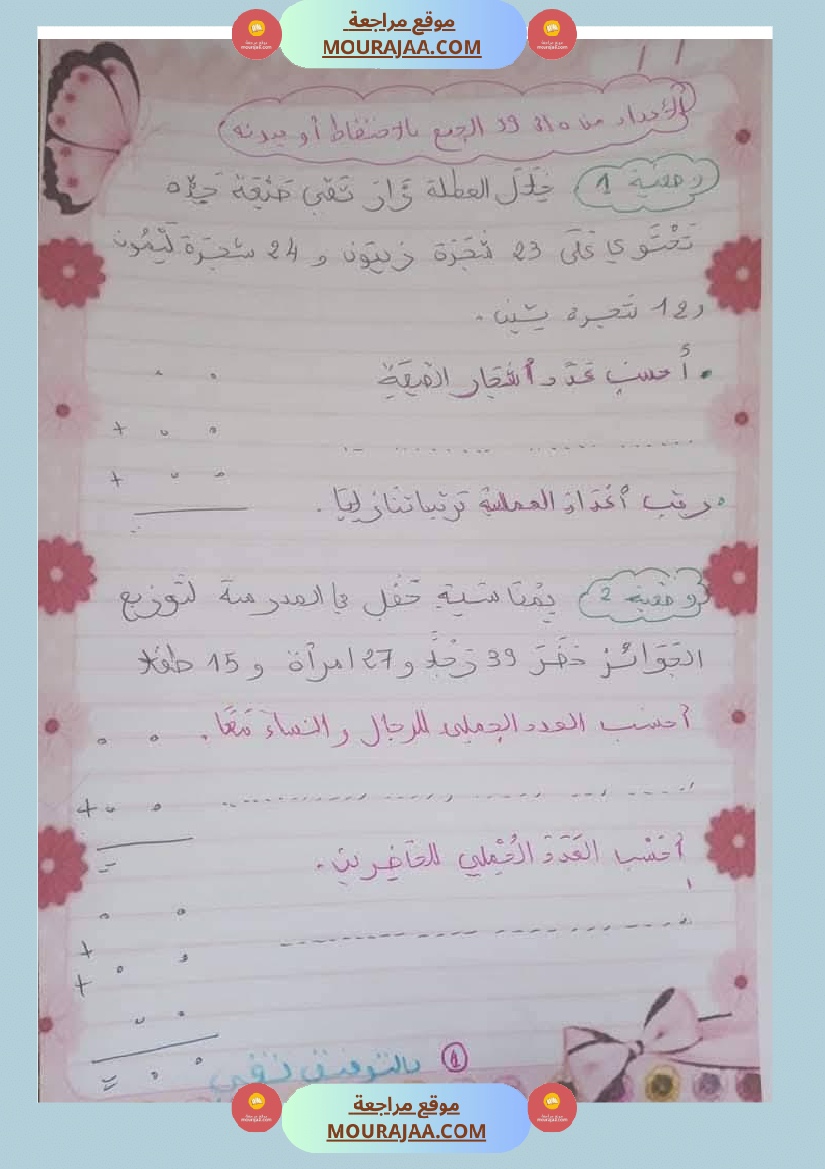 موقع مراجعة
MOURAJAA.COM
الأعداد من 0 الى 99 الجمع بالاحتفاظ أو بدونه
وضعية 1 خِلَالَ العطلة زَارَ تَقي ضَيْعَة جَدِّه
تَحْتَوي عَلَى 23 شَجَرَة زيتون و 24 شجَرَة لَيْمُون
و 12 شجرة
أحسب عَدَد أشجار الضيعَة
رتب أعْدَادَ العملية ترتيبا تنازليّا.
وضعية 2 بمُنَاسَبة حَفْل في المدرسة لتوزيع
الجَوَائِز حَضَرَ 39 رَجُلًا و 27 امرأة و 15 طفلا
أحسب العدد الجملي للرجال و النساء مَعًا.
أحْسُب العَدَدَ الْجُمْلي للحَاضِرين.
بالتوفيق
1
موقع مراجعة
MOURAJAA.COM